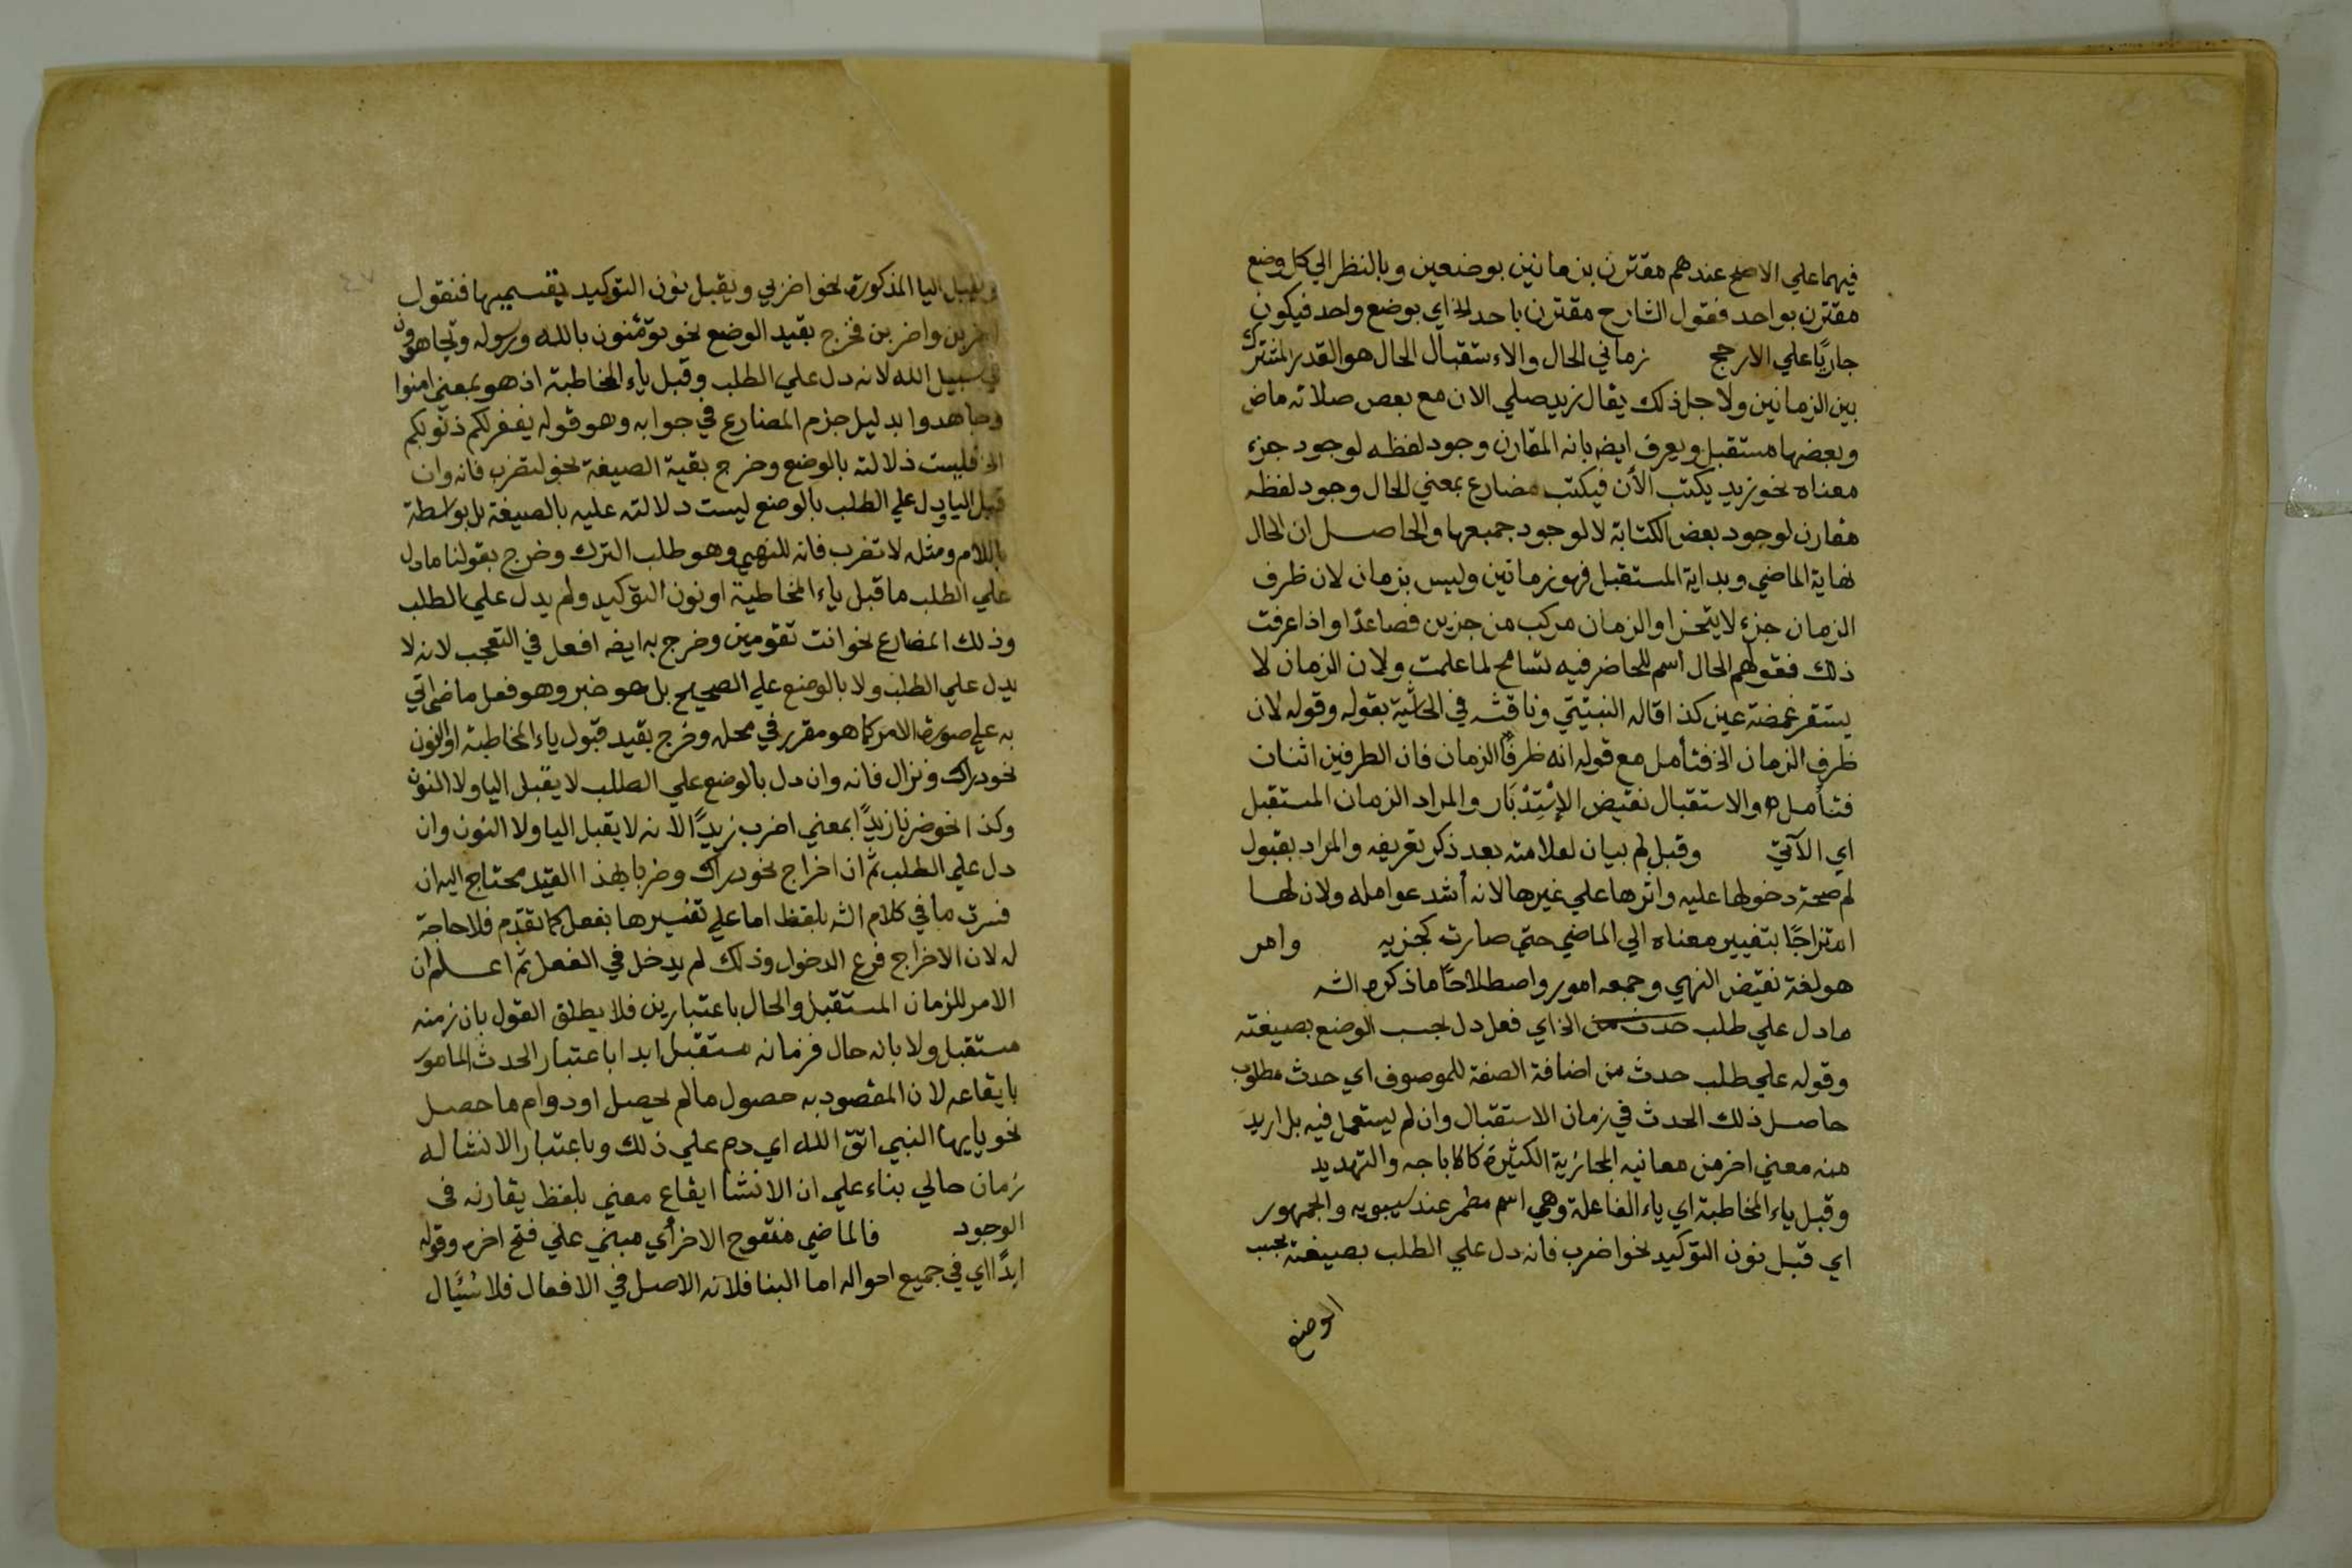 فيهما علي الاصح عندهم مقترن بزمانين بوضعين وبالنظر الي كل وضع
مقترن بواحد فقول الشارح مقترن باحد الخ اي بوضع واحد فيكون
جاريًا علي الارجح زماني الحال والاستقبال الحال هو القدر المشترك
بين الزمانين ولاجل ذلك يقال زيد يصلي الان مع بعض صلاته ماض
وبعضها مستقبل ويعرف ايضه بانه المقارن وجود لفظه لوجود جزء
معناه نحو زيد يكتب الأن فيكتب مضارع بمعني الحال وجود لفظه
مقارن لوجود بعض الكتابة لا لوجود جميعها والحاصل ان الحال
نهاية الماضي وبداية المستقبل فهو زمانين وليس بزمان لان ظرف
الزمان جزء لا يتجزا والزمان مركب من جزين فصاعدًا واذا عرفت
ذلك فقولهم الحال اسم للحاضر فيه تسامح لما علمت ولان الزمان لا
يستقر غمضة عين كذا قاله النبتيتي وناقشه في الحاشية بقوله وقوله لان
ظرف الزمان الخ فتأمل مع قوله انه ظرفًا الزمان فان الطرفين اثنان
فتأمله والاستقبال نقيض الإسْتِدْبَار والمراد الزمان المستقبل
اي الآتي وقبل لم بيان لعلامته بعد ذكر تعريفه والمراد بقبول
لم صحة دخولها عليه واثرها علي غيرها لانه أشد عوامله ولان لها
امتزاجًا بتغيير معناه الي الماضي حتي صارت كجزيه وامر
هو لغة نقيض النهي وجمعه امور واصطلاحًا ما ذكره الشه
ما دل علي طلب حدث من الخ اي فعل دل بحسب الوضع بصيغته
وقوله علي طلب حدث من اضافة الصفة للموصوف اي حدث مطلوب
حاصل ذلك الحدث في زمان الاستقبال وان لم يستعمل فيه بل اريد
منه معني اخر من معانيه المجازية الكثيرة كالاباحه والتهديد
وقبل ياء المخاطبة اي ياء الفاعلة وهي اسم مضمر عند سيبويه والجمهور
اي قبل نون التوكيد نحو اضرب فانه دل علي الطلب بصيغته بحسب
الوضع
ويقبل اليا المذكورة نحو اضربي ويقبل نون التوكيد بقسميها فنقول
اضربن واضربن فخرج بقيد الوضع نحو تؤمنون بالله ورسوله وتجاهدون
في سبيل الله لانه دل علي الطلب وقبل ياء المخاطبة اذ هو بمعني امنوا
وجاهدوا بدليل جزم المضارع في جوابه وهو قوله يغفر لكم ذنوبكم
الخ فليست دلالته بالوضع وخرج بقية الصيغة نحو لتضرب فانه وان
قبل اليا ودل علي الطلب بالوضع ليست دلالته عليه بالصيغة بل بواسطة
باللام ومثله لا تضرب فانه للنهي وهو طلب الترك وخرج بقولنا ما دل
علي الطلب ما قبل ياء المخاطبة او نون التوكيد ولم يدل علي الطلب
وذلك المضارع نحو انت تقومين وخرج به ايضه افعل في التعجب لانه لا
يدل علي الطلب ولا بالوضع علي الصحيح بل هو خبر وهو فعل ماض اتي
به علي صورة الامر كما هو مقرر في محله وخرج بقيد قبول ياء المخاطبة او النون
نحو دراك ونزال فانه وان دل بالوضع علي الطلب لا يقبل اليا ولا النون
وكذا نحو ضربا زيدًا بمعني اضرب زيدًا لانه لا يقبل اليا ولا النون وان
دل علي الطلب ثم ان اخراج نحو دراك وضربا بهذا القيد محتاج اليه ان
فسرت ما في كلام الشه بلفظ اما علي تفسيرها بفعل كما تقدم فلا حاجة
له لان الاخراج فرع الدخول وذلك لم يدخل في الفعل ثم اعلم ان
الامر للزمان المستقبل والحال باعتبارين فلا يطلق القول بان زمنه
مستقبل ولا بانه حال فزمانه مستقبل ابدا باعتبار الحدث المامور
بايقاعه لان المقصود به حصول ما لم يحصل او دوام ما حصل
نحو يايها النبي اتق الله اي دم علي ذلك وباعتبار الانشا له
زمان حالي بناء علي ان الانشا ايقاع معني بلفظ يقارنه في
الوجود فالماضي مفتوح الاخر أي مبني علي فتح اخره وقوله
ابدًا اي في جميع احواله اما البنا فلانه الاصل في الافعال فلا يسَأل